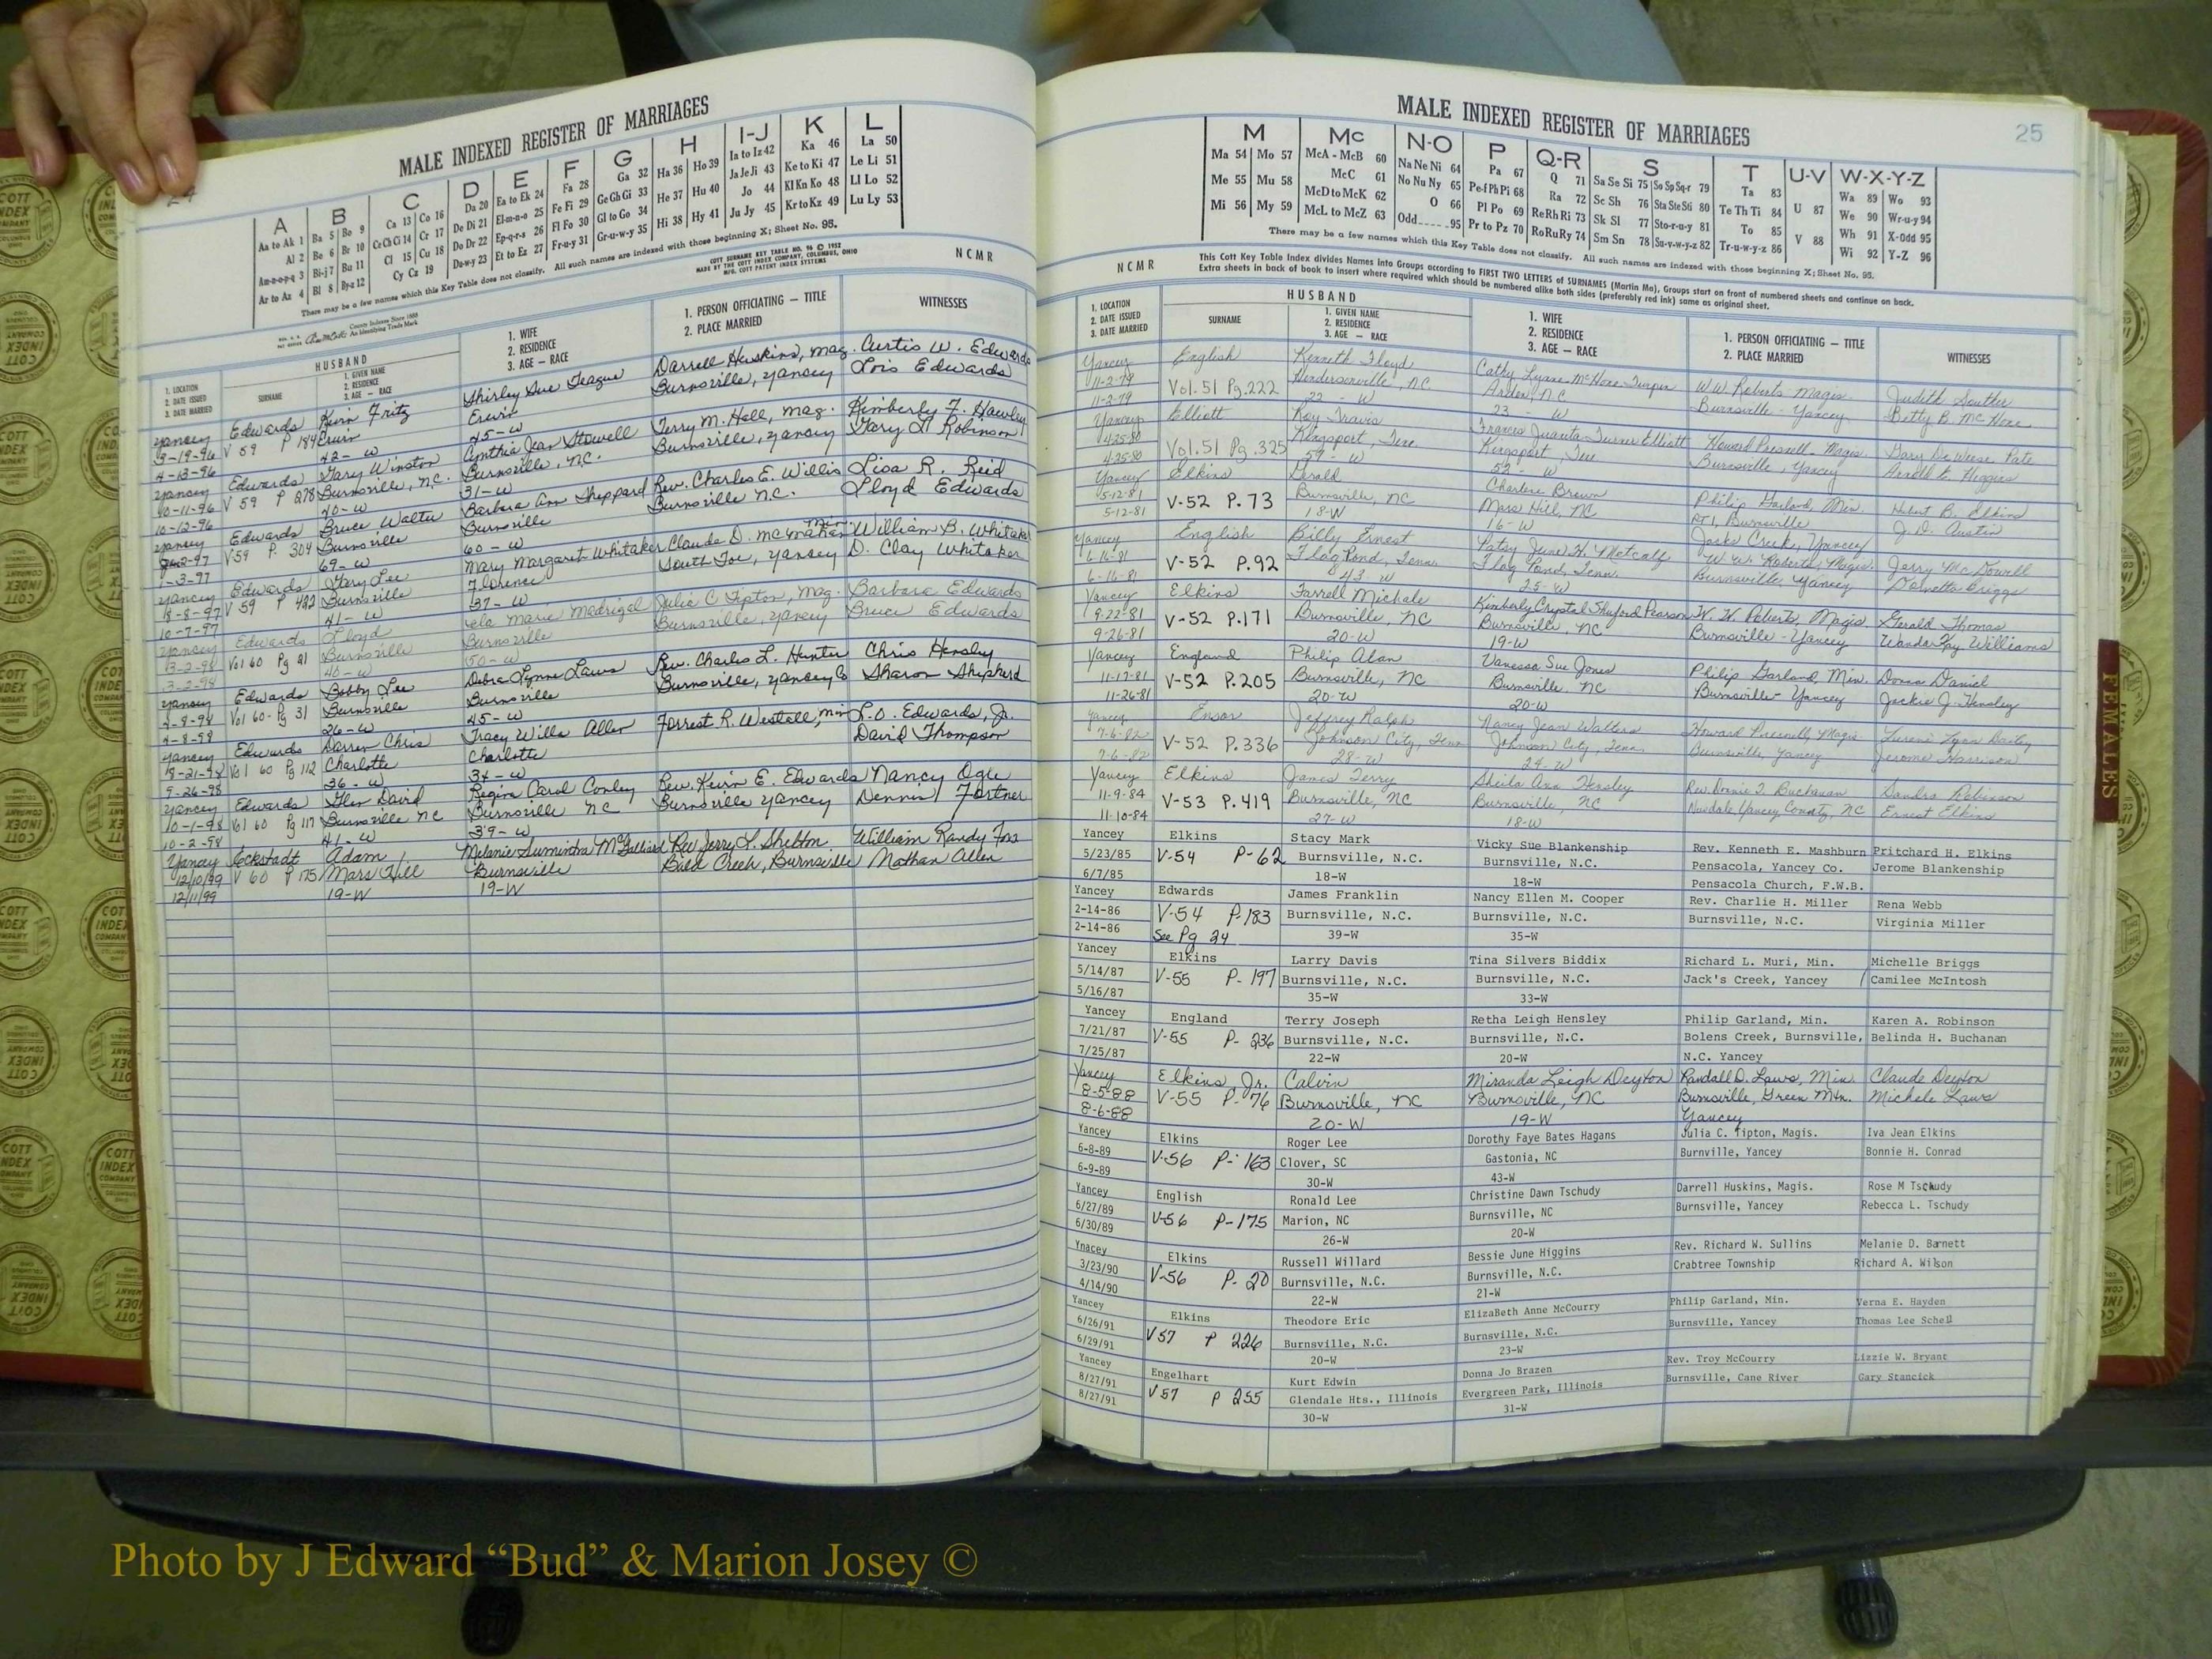 24
MALE INDEXED REGISTER OF MARRIAGES
A B C D E F G H I-J K L
Aa to Ak 1 Ba 5 Bo 9 Ca 13 Co 16 Da 20 Ea to Ek 24 Fa 28 Ga 32 Ha 36 Ho 39 Ia to Iz 42 Ka 46 La 50
Al 2 Be 6 Br 10 Ce Ch Ci 14 Cr 17 De Di 21 El-m-n-o 25 Fe Fi 29 Ge Gh Gi 33 He 37 Hu 40 Ja Je Ji 43 Ke to Ki 47 Le Li 51
Am-n-o-p-q 3 Bi-j 7 Bu 11 Cl 15 Cu 18 Do Dr 22 Ep-q-r-s 26 Fl Fo 30 Gl to Go 34 Hi 38 Hy 41 Jo 44 Kl Kn Ko 48 Ll Lo 52
Ar to Az 4 Bl 8 By-z 12 Cy Cz 19 Du-w-y 23 Et to Ez 27 Fr-u-y 31 Gr-u-w-y 35 Ju Jy 45 Kr to Kz 49 Lu Ly 53
There may be a few names which this Key Table does not classify. All such names are indexed with those beginning X; Sheet No. 95.
COTT SURNAME KEY TABLE NO. 96 © 1952
MADE BY THE COTT INDEX COMPANY, COLUMBUS, OHIO
MFG. COTT PATENT INDEX SYSTEMS
NCMR
County Indexes Since 1888
An Identifying Trade Mark
HUSBAND
1. LOCATION
2. DATE ISSUED
3. DATE MARRIED
SURNAME
1. GIVEN NAME
2. RESIDENCE
3. AGE — RACE
1. WIFE
2. RESIDENCE
3. AGE — RACE
1. PERSON OFFICIATING — TITLE
2. PLACE MARRIED
WITNESSES
Yancey Edwards Kevin Fritz Shirley Sue Teague Darrell Huskins, Mag. Curtis W. Edwards
3-19-96 V 59 P 184 Erwin Erwin Burnsville, Yancey Lois Edwards
4-13-96 42-W 45-W
Yancey Edwards Gary Winston Cynthia Jean Stowell Terry M. Hall, Mag. Kimberly F. Hawley
10-11-96 V 59 P 278 Burnsville, N.C. Burnsville, N.C. Burnsville, Yancey Gary L. Robinson
10-12-96 40-W 31-W
Yancey Edwards Bruce Walter Barbara Ann Sheppard Rev. Charles E. Willis Lisa R. Reid
V59 P. 304 Burnsville Burnsville Burnsville N.C. Lloyd Edwards
1-3-97 69-W 60-W
Yancey Edwards Gary Lee Mary Margaret Whitaker Claude D. McMahan Min. William B. Whitaker
V 59 P 422 Burnsville Florence South Toe, Yancey D. Clay Whitaker
10-7-97 41-W 37-W
Yancey Edwards Lloyd Marie Madrigal Julia C Tipton, Mag. Barbara Edwards
3-2-98 Vol 60 Pg 21 Burnsville Burnsville Burnsville, Yancey Bruce Edwards
3-2-98 40-W 50-W
Yancey Edwards Bobby Lee Debra Lynne Laws Rev. Charles L. Hunter Chris Hensley
Vol 60-Pg 31 Burnsville Burnsville Burnsville, Yancey Co Sharon Shepherd
4-8-98 26-W 45-W
Yancey Edwards Darren Chris Tracy Wills Allen Forrest R. Westall, Min L.O. Edwards, Jr.
Vol 60 Pg 112 Charlotte Charlotte David Thompson
9-26-98 36-W 34-W
Yancey Edwards Glen David Regina Carol Conley Rev. Kevin E. Edwards Nancy Ogle
10-1-98 Vol 60 Pg 117 Burnsville NC Burnsville NC Burnsville Yancey Dennis Fortner
10-2-98 41-W 39-W
Yancey Eckstadt Adam Melanie Sumintra McGalliard Rev Jerry L. Shelton William Randy Fox
12/10/99 V 60 P 175 Mars Hill Burnsville Bald Creek, Burnsville Nathan Allen
12/11/99 19-W 19-W
25
MALE INDEXED REGISTER OF MARRIAGES
M Mc N-O P Q-R S T U-V W-X-Y-Z
Ma 54 Mo 57 McA - McB 60 Na Ne Ni 64 Pa 67 Q 71 Sa Se Si 75 So Sp Sq-r 79 Ta 83 U 87 Wa 89 Wo 93
Me 55 Mu 58 McC 61 No Nu Ny 65 Pe-f Ph Pi 68 Ra 72 Sc Sh 76 Sta Ste Sti 80 Te Th Ti 84 V 88 We 90 Wr-u-y 94
Mi 56 My 59 McD to McK 62 O 66 Pl Po 69 Re Rh Ri 73 Sk Sl 77 Sto-r-u-y 81 To 85 Wh 91 X-Odd 95
McL to McZ 63 Odd 95 Pr to Pz 70 Ro Ru Ry 74 Sm Sn 78 Su-v-w-y-z 82 Tr-u-w-y-z 86 Wi 92 Y-Z 96
There may be a few names which this Key Table does not classify. All such names are indexed with those beginning X; Sheet No. 95.
NCMR
This Cott Key Table Index divides Names into Groups according to FIRST TWO LETTERS of SURNAMES (Martin Ma). Groups start on front of numbered sheets and continue on back.
Extra sheets in back of book to insert where required which should be numbered alike both sides (preferably red ink) same as original sheet.
HUSBAND
1. LOCATION
2. DATE ISSUED
3. DATE MARRIED
SURNAME
1. GIVEN NAME
2. RESIDENCE
3. AGE — RACE
1. WIFE
2. RESIDENCE
3. AGE — RACE
1. PERSON OFFICIATING — TITLE
2. PLACE MARRIED
WITNESSES
Yancey English Kenneth Floyd Cathy Lynne McHone Turpin W.W. Roberts Magis. Judith Souther
11-2-79 Vol.51 Pg.222 Hendersonville, NC Arden, N.C. Burnsville - Yancey Betty B. McHone
11-2-79 22 - W 23 - W
Yancey Elliott Roy Travis Frances Juanita Turner Elliott Howard Presnell - Magis. Gary DeWeese Pate
4-25-80 Vol.51 Pg.325 Kingsport, Tenn Kingsport, Tenn Burnsville, Yancey Arnold E. Higgins
4-25-80 59 - W 52 - W
Yancey Elkins Gerald Charlene Brown Philip Garland, Min. Hobert B. Elkins
5-12-81 V-52 P.73 Burnsville, NC Mars Hill, NC Rt 1, Burnsville J.D. Austin
5-12-81 18-W 16-W Jacks Creek, Yancey
Yancey English Billy Ernest Patsy June H. Metcalf W.W. Roberts Magis. Jerry McDowell
6-16-81 V-52 P.92 Flag Pond, Tenn. Flag Pond, Tenn. Burnsville, Yancey Briggs
6-16-81 43 W 25-W
Yancey Elkins Farrell Michale Kimberly Crystal Shuford Pearson W.W. Roberts, Magis. Gerald Thomas
9-22-81 V-52 P.171 Burnsville, NC Burnsville, NC Burnsville - Yancey Wanda Kay Williams
9-26-81 20-W 19-W
Yancey England Philip Alan Vanessa Sue Jones Philip Garland, Min. Donna Daniel
11-17-81 V-52 P.205 Burnsville, NC Burnsville, NC Burnsville - Yancey Jackie J. Hensley
11-26-81 20-W 20-W
Yancey Ensor Jeffrey Ralph Nancy Jean Walters Howard Presnell, Magis.
7-6-82 V-52 P.336 Johnson City, Tenn Johnson City, Tenn. Burnsville, Yancey Jerome Harrison
7-6-82 28-W 29-W
Yancey Elkins James Terry Sheila Ann Hensley Rev. Donnie J. Buchanan Sandra Robinson
11-9-84 V-53 P.419 Burnsville, NC Burnsville, NC Newdale Yancey County, NC Ernest Elkins
11-10-84 27-W 18-W
Yancey Elkins Stacy Mark Vicky Sue Blankenship Rev. Kenneth E. Mashburn Pritchard H. Elkins
5/23/85 V-54 P-62 Burnsville, N.C. Burnsville, N.C. Pensacola, Yancey Co. Jerome Blankenship
6/7/85 18-W 18-W Pensacola Church, F.W.B.
Yancey Edwards James Franklin Nancy Ellen M. Cooper Rev. Charlie H. Miller Rena Webb
2-14-86 V-54 P.183 Burnsville, N.C. Burnsville, N.C. Burnsville, N.C. Virginia Miller
2-14-86 See Pg 24 39-W 35-W
Yancey Elkins Larry Davis Tina Silvers Biddix Richard L. Muri, Min. Michelle Briggs
5/14/87 V-55 P-197 Burnsville, N.C. Burnsville, N.C. Jack's Creek, Yancey Camilee McIntosh
5/16/87 35-W 33-W
Yancey England Terry Joseph Retha Leigh Hensley Philip Garland, Min. Karen A. Robinson
7/21/87 V-55 P-236 Burnsville, N.C. Burnsville, N.C. Bolens Creek, Burnsville, Belinda H. Buchanan
7/25/87 22-W 20-W N.C. Yancey
Yancey Elkins Jr. Calvin Miranda Leigh Deyton Randall D. Laws, Min. Claude Deyton
8-5-88 V-55 P-76 Burnsville, NC Burnsville, NC Burnsville, Green Mtn. Michele Laws
8-6-88 20-W 19-W Yancey
Yancey Elkins Roger Lee Dorothy Faye Bates Hagans Julia C. Tipton, Magis. Iva Jean Elkins
6-8-89 V-56 P-163 Clover, SC Gastonia, NC Burnville, Yancey Bonnie H. Conrad
6-9-89 30-W 43-W
Yancey English Ronald Lee Christine Dawn Tschudy Darrell Huskins, Magis. Rose M Tschudy
6/27/89 V-56 P-175 Marion, NC Burnsville, NC Burnsville, Yancey Rebecca L. Tschudy
6/30/89 26-W 20-W
Ynacey Elkins Russell Willard Bessie June Higgins Rev. Richard W. Sullins Melanie D. Barnett
3/23/90 V-56 P-20 Burnsville, N.C. Burnsville, N.C. Crabtree Township Richard A. Wilson
4/14/90 22-W 21-W
Yancey Elkins Theodore Eric ElizaBeth Anne McCourry Philip Garland, Min. Verna E. Hayden
6/26/91 V57 P 226 Burnsville, N.C. Burnsville, N.C. Burnsville, Yancey Thomas Lee Schell
6/29/91 20-W 23-W
Yancey Engelhart Kurt Edwin Donna Jo Brazen Rev. Troy McCourry Lizzie W. Bryant
8/27/91 V57 P 255 Glendale Hts., Illinois Evergreen Park, Illinois Burnsville, Cane River Gary Stancick
8/27/91 30-W 31-W
FEMALES
Photo by J Edward “Bud” & Marion Josey ©